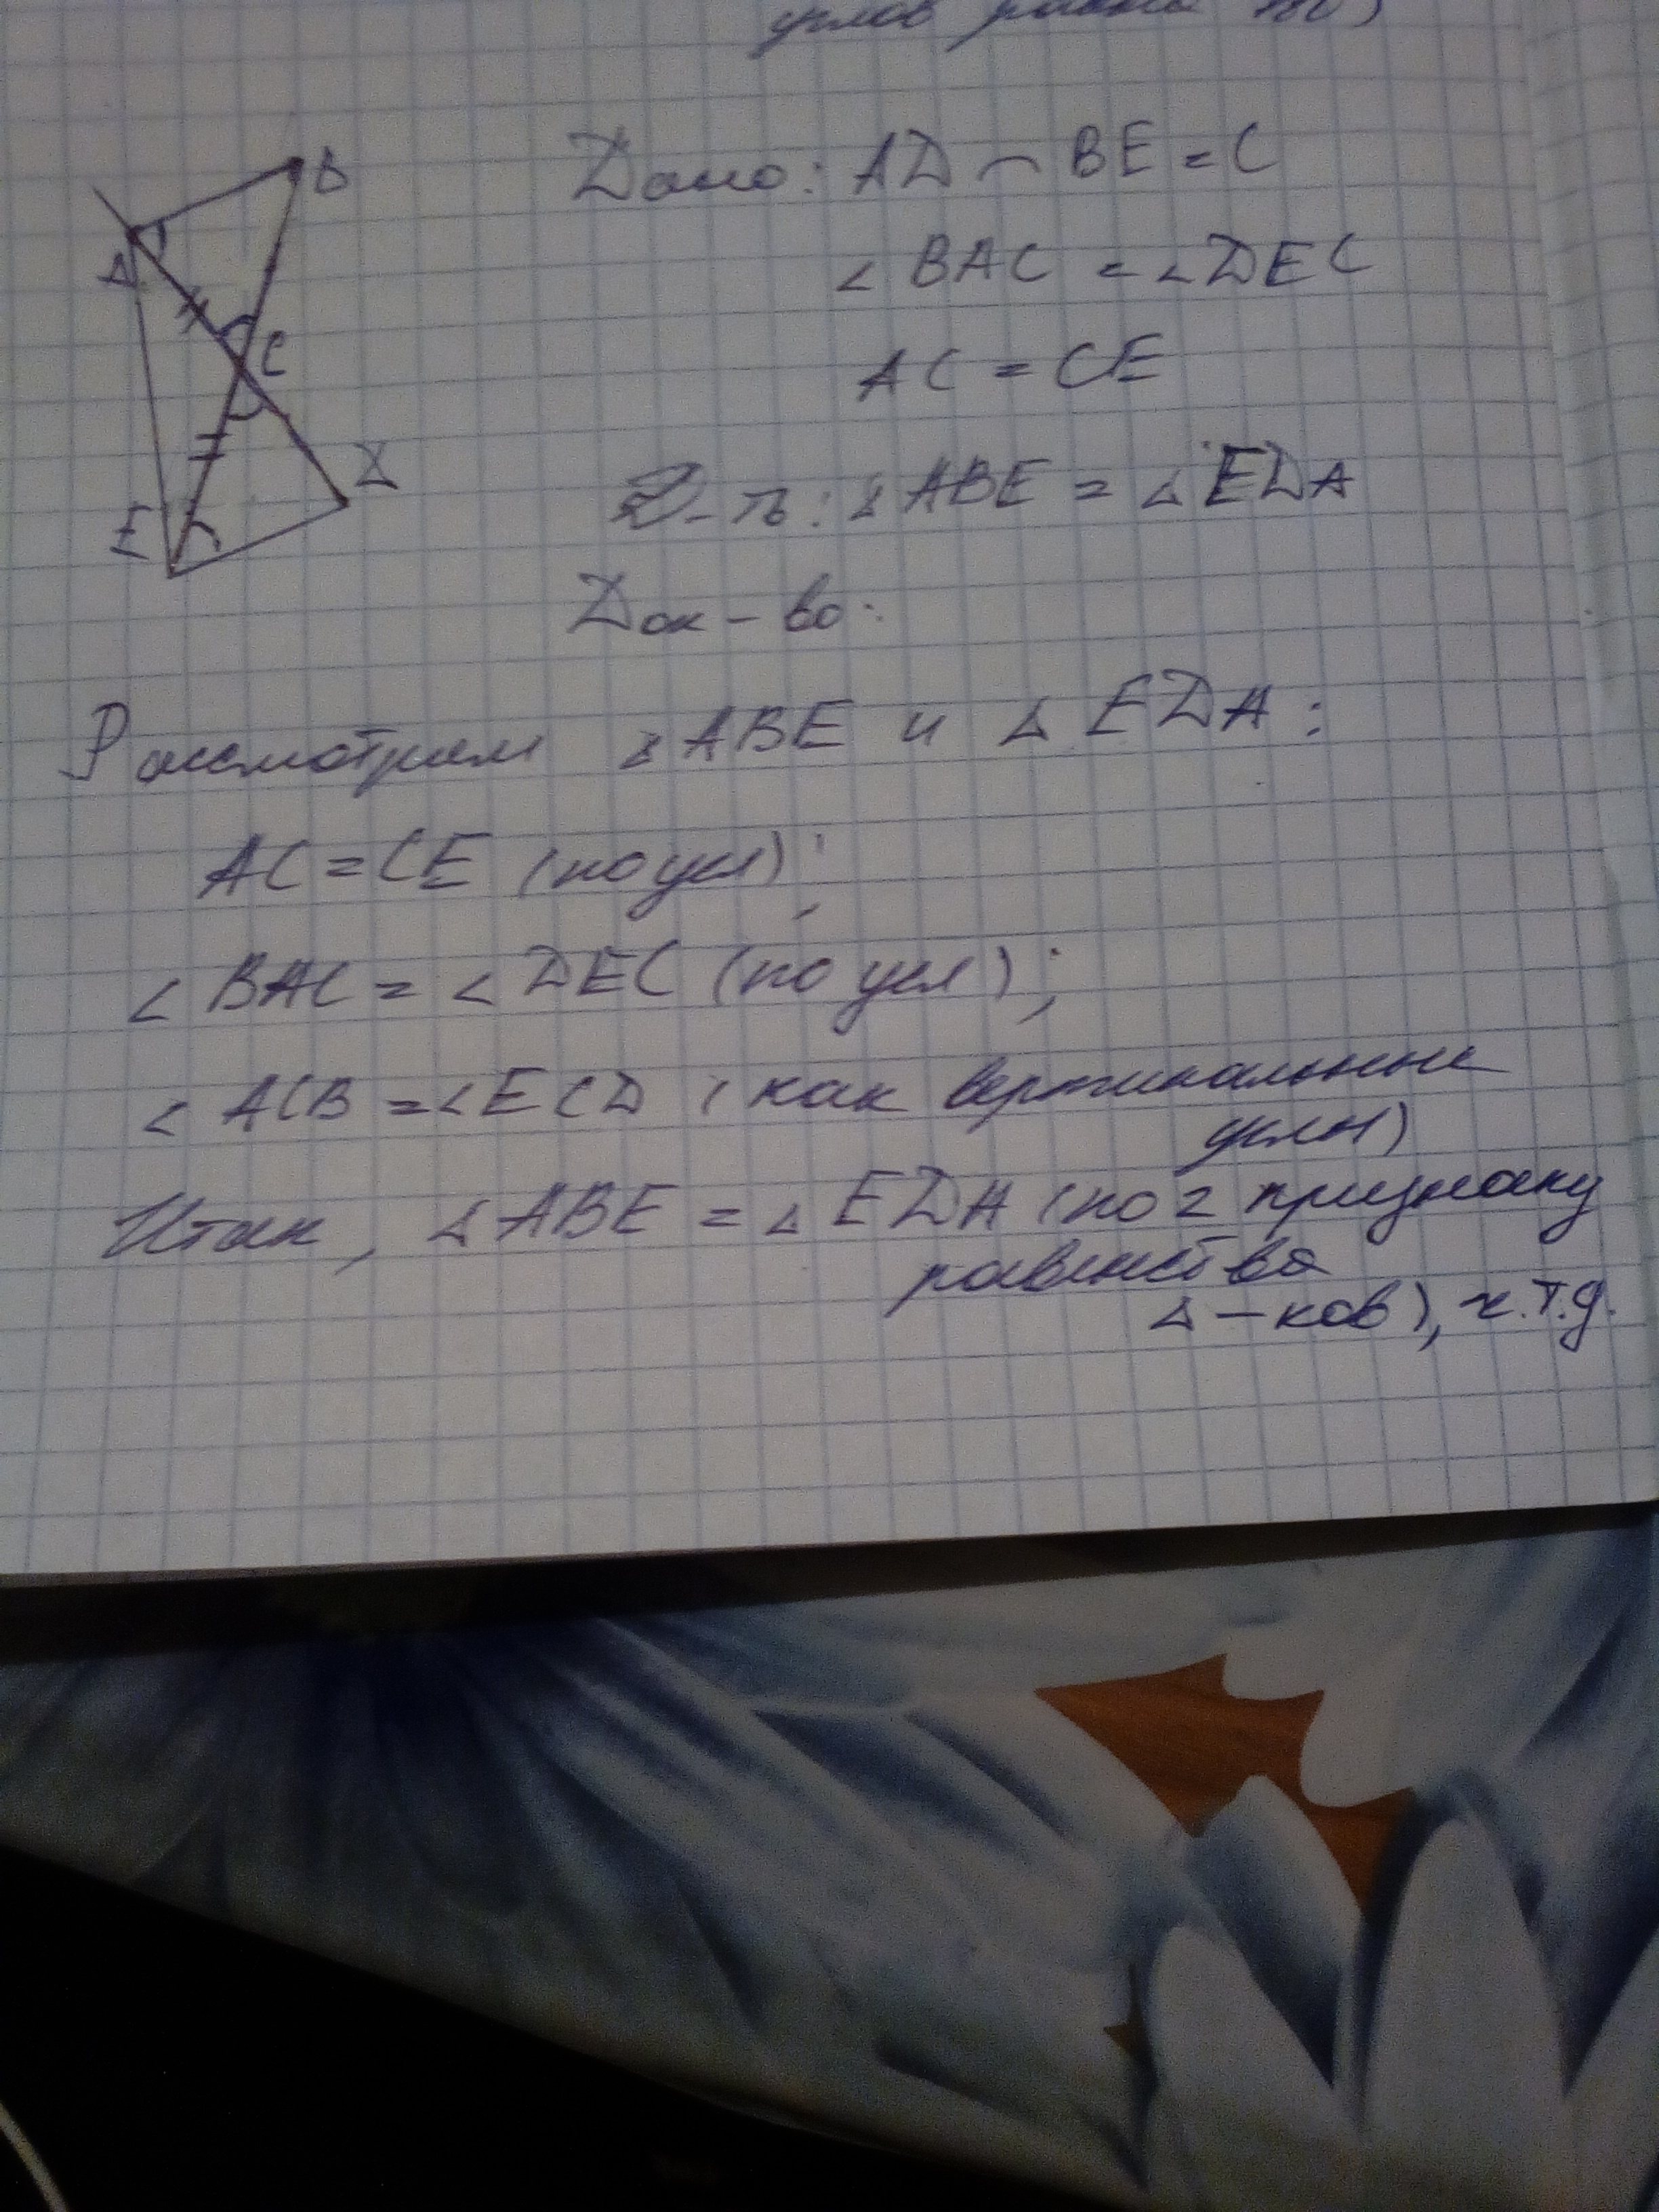 углов равна
B
A
C
D
E
Дано: AD ∩ BE = C
∠ BAC = ∠ DEC
AC = CE
Д-ть: Δ ABE = Δ EDA
Док-во:
Рассмотрим Δ ABE и Δ EDA:
AC = CE (по усл);
∠ BAC = ∠ DEC (по усл);
∠ ACB = ∠ ECD (как вертикальные
углы)
Итак, Δ ABE = Δ EDA (по 2 признаку
равенства
Δ-ков), ч.т.д.